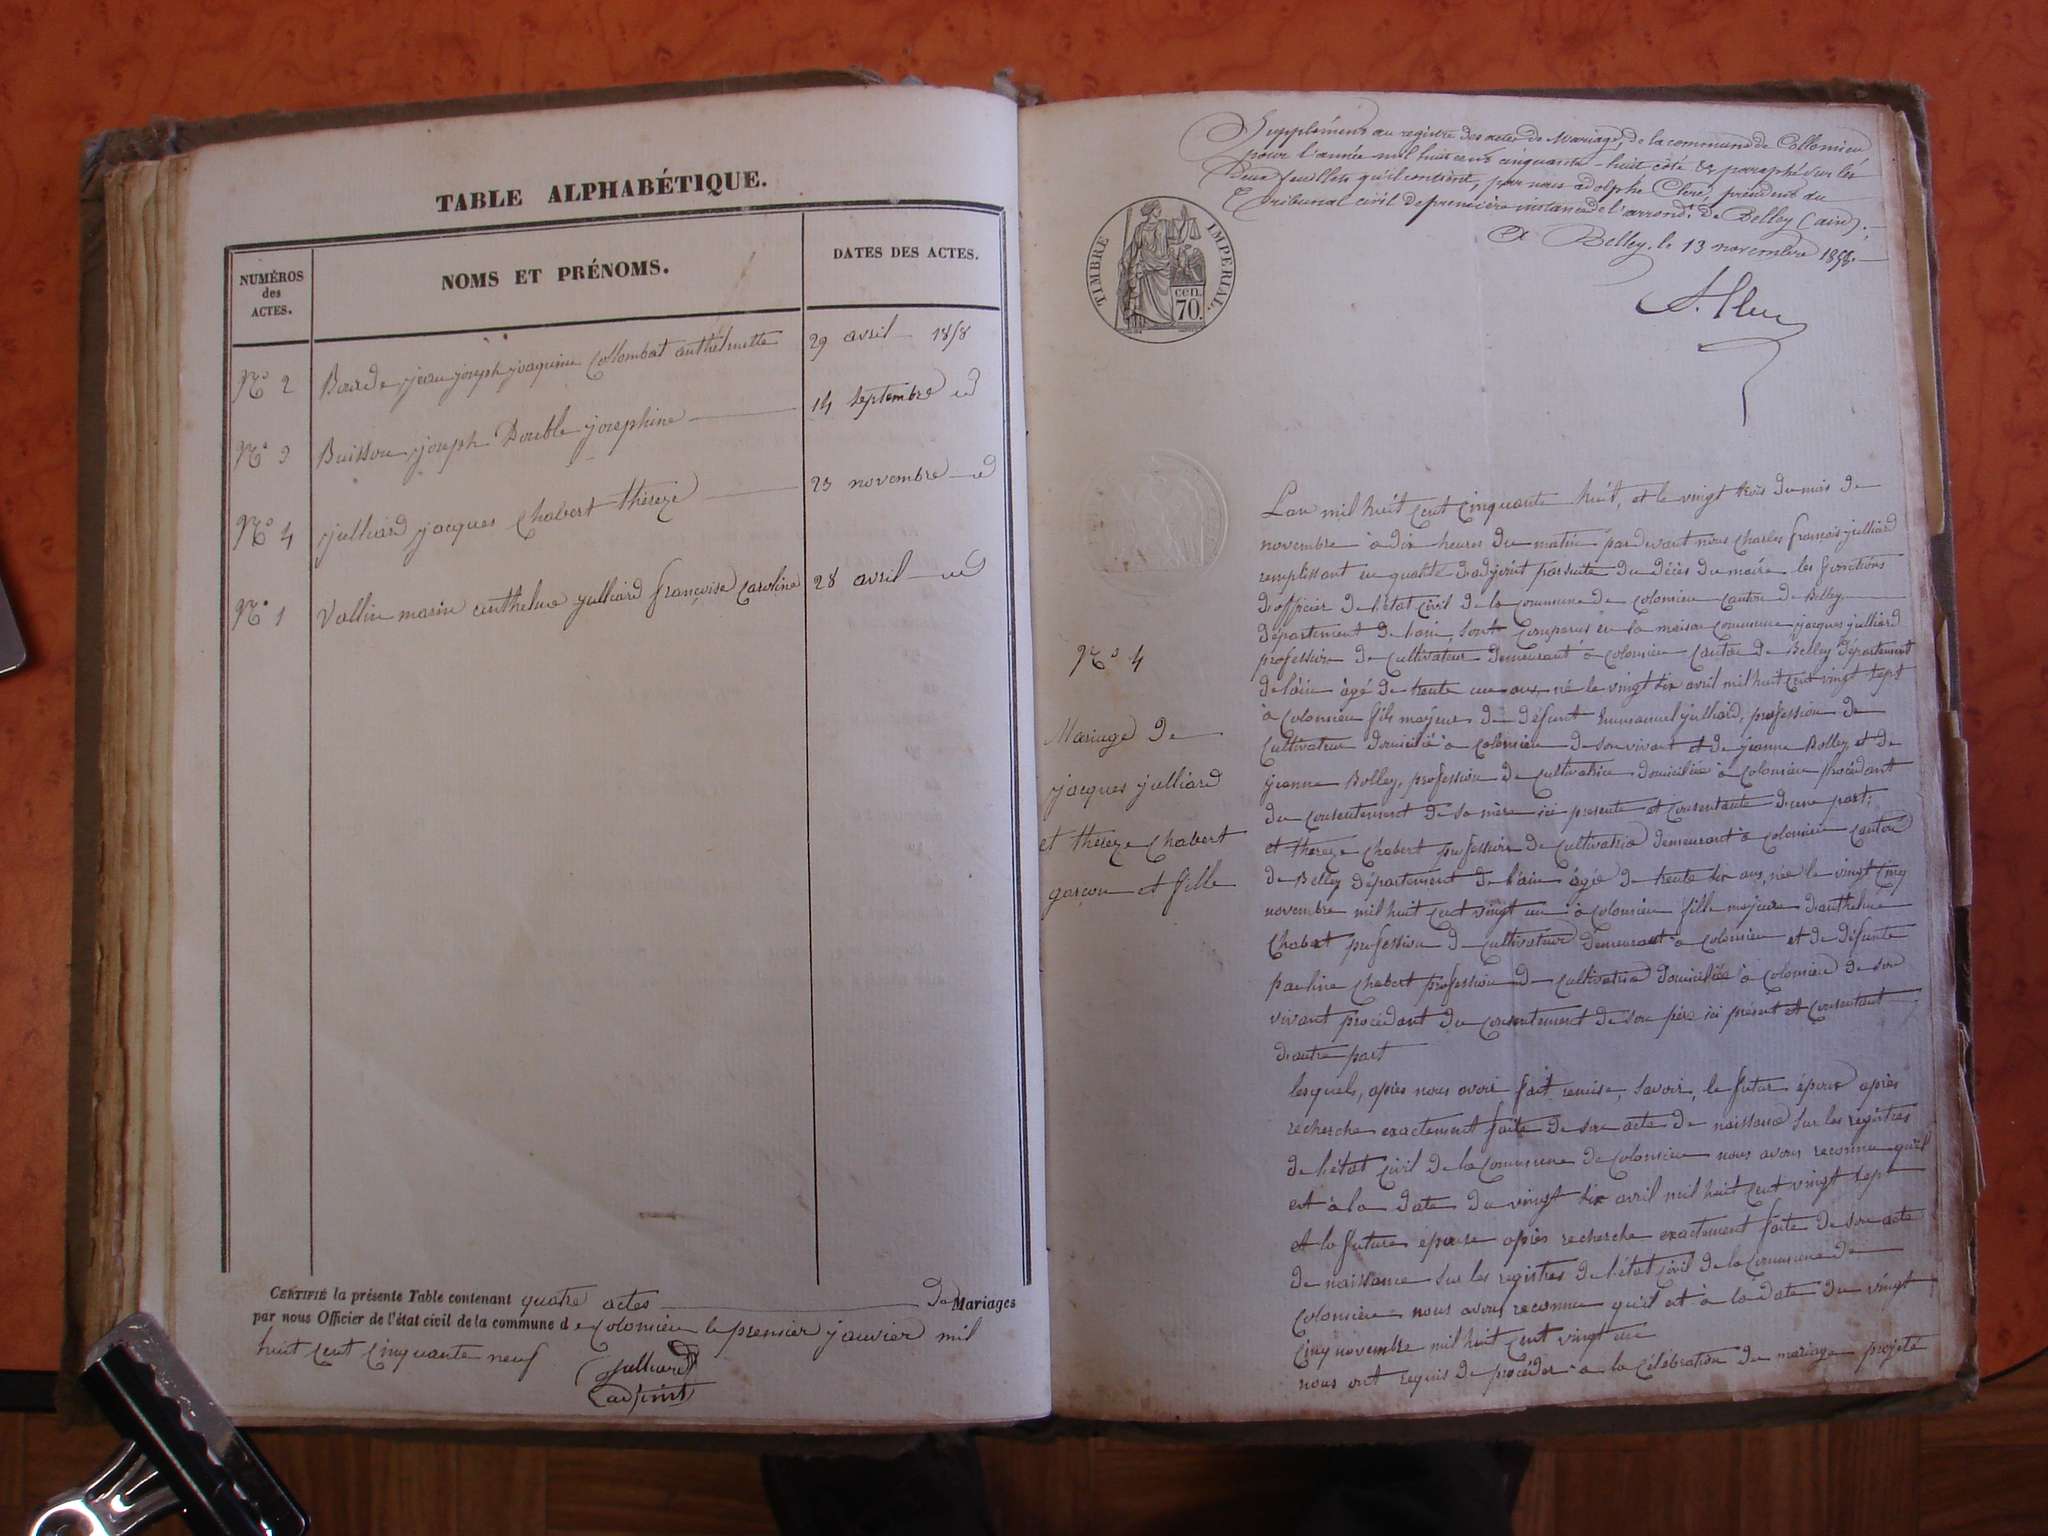 TABLE ALPHABÉTIQUE.
NUMÉROS
des
ACTES.
NOMS ET PRÉNOMS.
DATES DES ACTES.
N° 2 Borde jean joseph joaquime Collombat anthelmette 29 avril 1858
N° 3 Buisson joseph Double josephine 14 Septembre id
N° 4 julliard jacques Chabert thereze 23 novembre id
N° 1 Vallin marin anthelme julliard françoise Caroline 28 avril id
CERTIFIÉ la présente Table contenant quatre actes de Mariages
par nous Officier de l'état civil de la commune de Colomieu le premier janvier mil
huit cent cinquante neuf
julliard
adjoint
Supplément au registre des actes de Mariage, de la commune de Collomieu
pour l'année mil huit cent cinquante-huit côté & paraphé sur les
deux feuillets qu'il contient, par nous adolphe Clerc, président du
Tribunal civil de première instance de l'arrondt de Belley (ain).
A Belley, le 13 novembre 1858.
TIMBRE IMPERIAL.
cen.
70.
N° 4
Mariage de
jacques julliard
et thereze Chabert
garçon et fille
L'an mil huit cent cinquante huit, et le vingt trois du mois de
novembre à dix heures du matin pardevant nous Charles françois julliard
remplissant en qualité d'adjoint par suite du décès du maire les fonctions
d'officier de l'état civil de la commune de colomieu canton de Belley
département de l'ain, sont comparus en la maison commune jacques julliard
profession de cultivateur demeurant à colomieu canton de Belley département
de l'ain âgé de trente un ans, né le vingt six avril mil huit cent vingt sept
à colomieu fils majeur de défunt Emmanuel julliard, profession de
cultivateur domicilié à colomieu de son vivant et de jeanne Bolley et de
jeanne Bolley, profession de cultivatrice domiciliée à colomieu procédant
du consentement de sa mère ici presente et consentante d'une part;
et thereze Chabert profession de cultivatrice demeurant à colomieu canton
de Belley département de l'ain âgée de trente six ans, née le vingt cinq
novembre mil huit cent vingt un à colomieu fille majeure d'anthelme
Chabert profession de cultivateur demeurant à colomieu et de défunte
pauline Chabert profession de cultivatrice domiciliée à colomieu de son
vivant procédant du consentement de son père ici présent et consentant
d'autre part
lesquels, après nous avoir fait remise, savoir, le futur époux après
recherche exactement faite de son acte de naissance sur les registres
de l'état civil de la commune de colomieu nous avons reconnu qu'il
est à la date du vingt six avril mil huit cent vingt sept
et la future épouse après recherche exactement faite de son acte
de naissance sur les registres de l'état civil de la commune de
colomieu nous avons reconnu qu'il est à la date du vingt
cinq novembre mil huit cent vingt un
nous ont requis de procéder à la célébration du mariage projeté